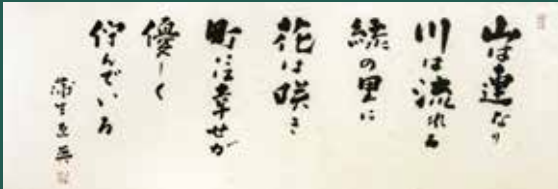 山は連なり
川は流れる
緑の里に
花は咲き
町には幸せが
優しく
佇んでいる